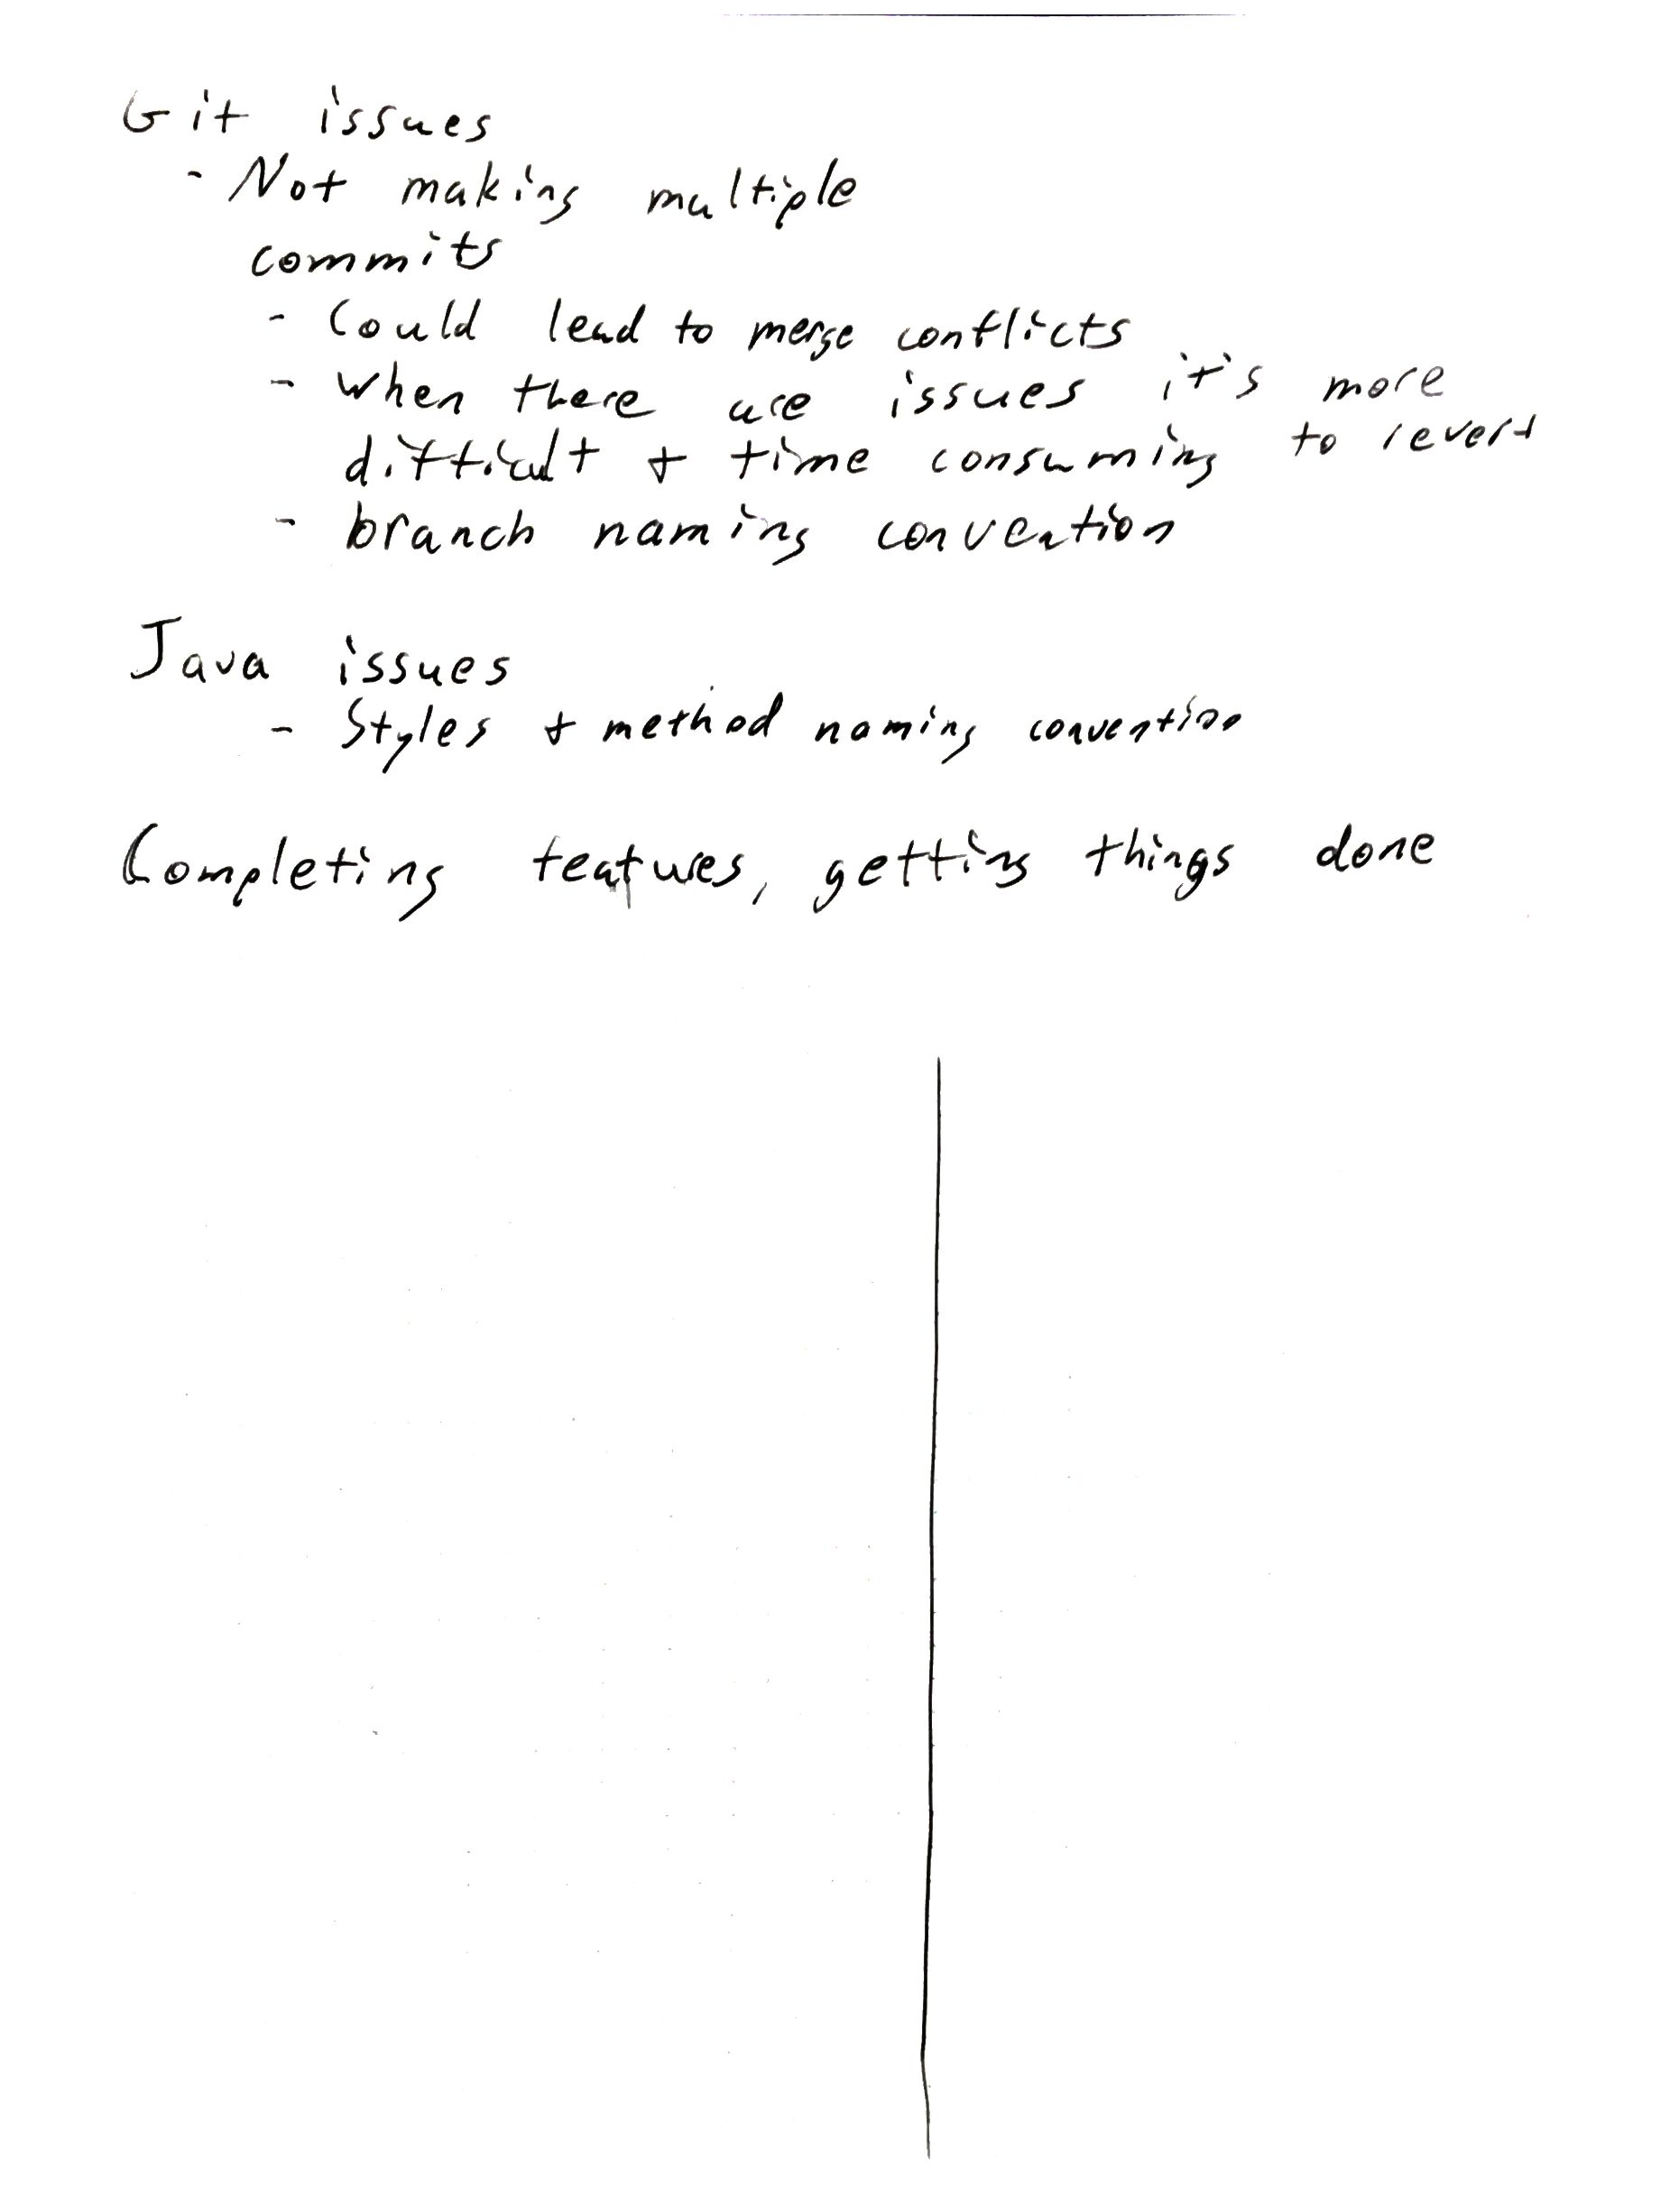 Git issues
- Not making multiple
commits
- Could lead to merge conflicts
- when there are issues it's more
difficult + time consuming to revert
- branch naming convention
Java issues
- Styles + method naming convention
Completing features, getting things done